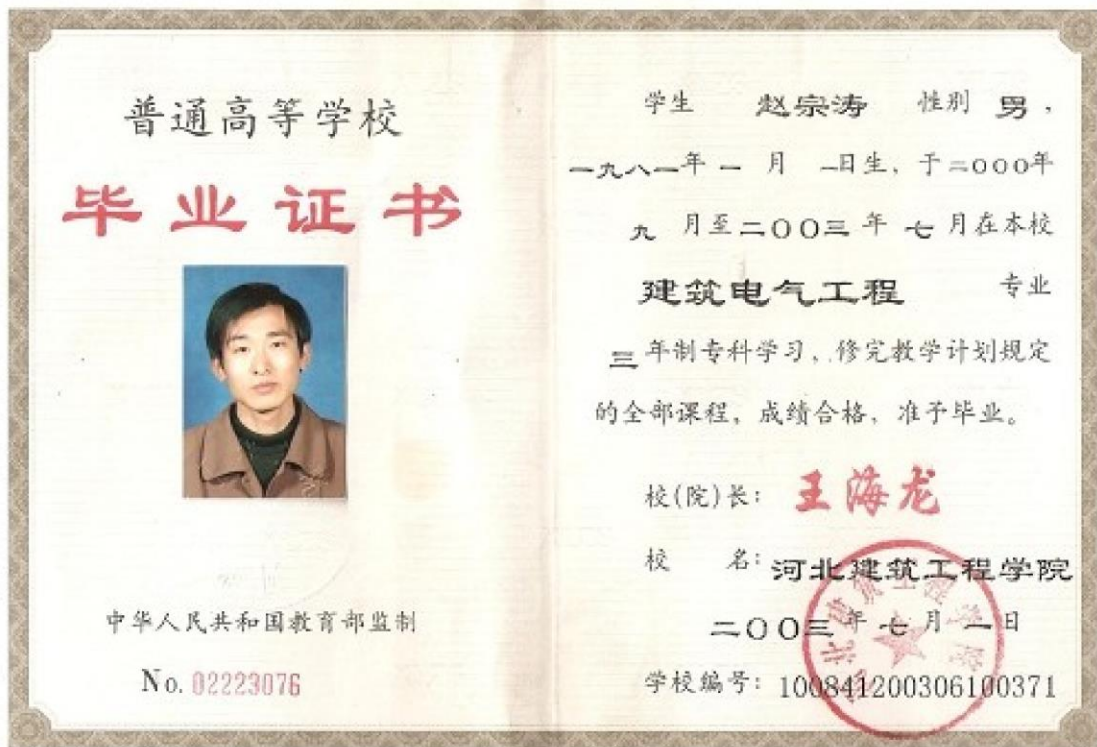 普通高等学校
毕业证书
中华人民共和国教育部监制
No. 02223076
学生 赵宗涛 性别 男,
一九八一年 一 月 一日生, 于二000年
九 月至二00三 年 七 月在本校
建筑电气工程 专业
三 年制专科学习, 修完教学计划规定
的全部课程, 成绩合格, 准予毕业。
校(院)长: 王海龙
校 名: 河北建筑工程学院
二00三年 七 月 一日
学校编号: 100841200306100371
河北建筑工程学院